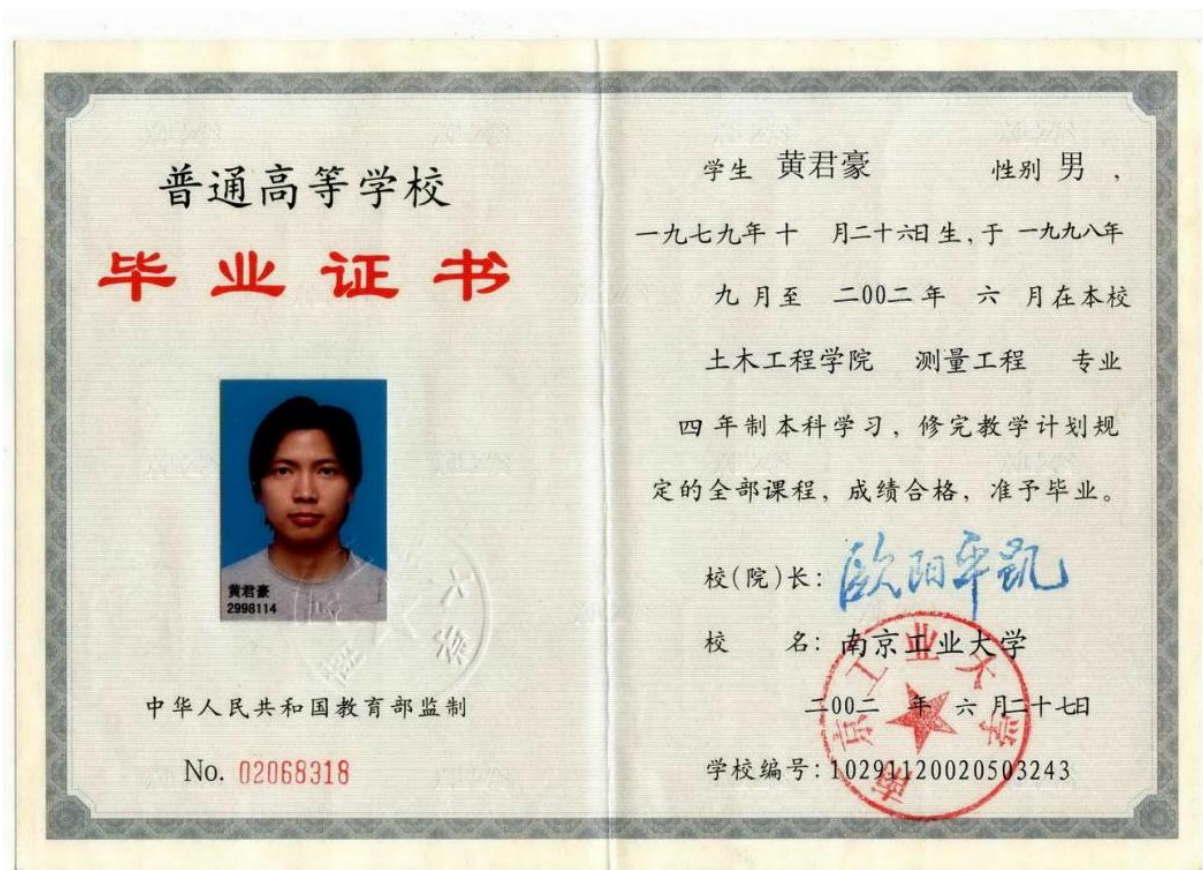 普通高等学校
毕业证书
黄君豪
2998114
中华人民共和国教育部监制
No. 02068318
学生 黄君豪 性别 男 ,
一九七九年 十 月二十六日生,于 一九九八年
九 月至 二00二 年 六 月在本校
土木工程学院 测量工程 专业
四 年制本科学习, 修完教学计划规
定的全部课程, 成绩合格, 准予毕业。
校(院)长: 欧阳平凯
校 名: 南京工业大学
二00二 年 六 月二十七日
学校编号: 10291120020503243
南京工业大学